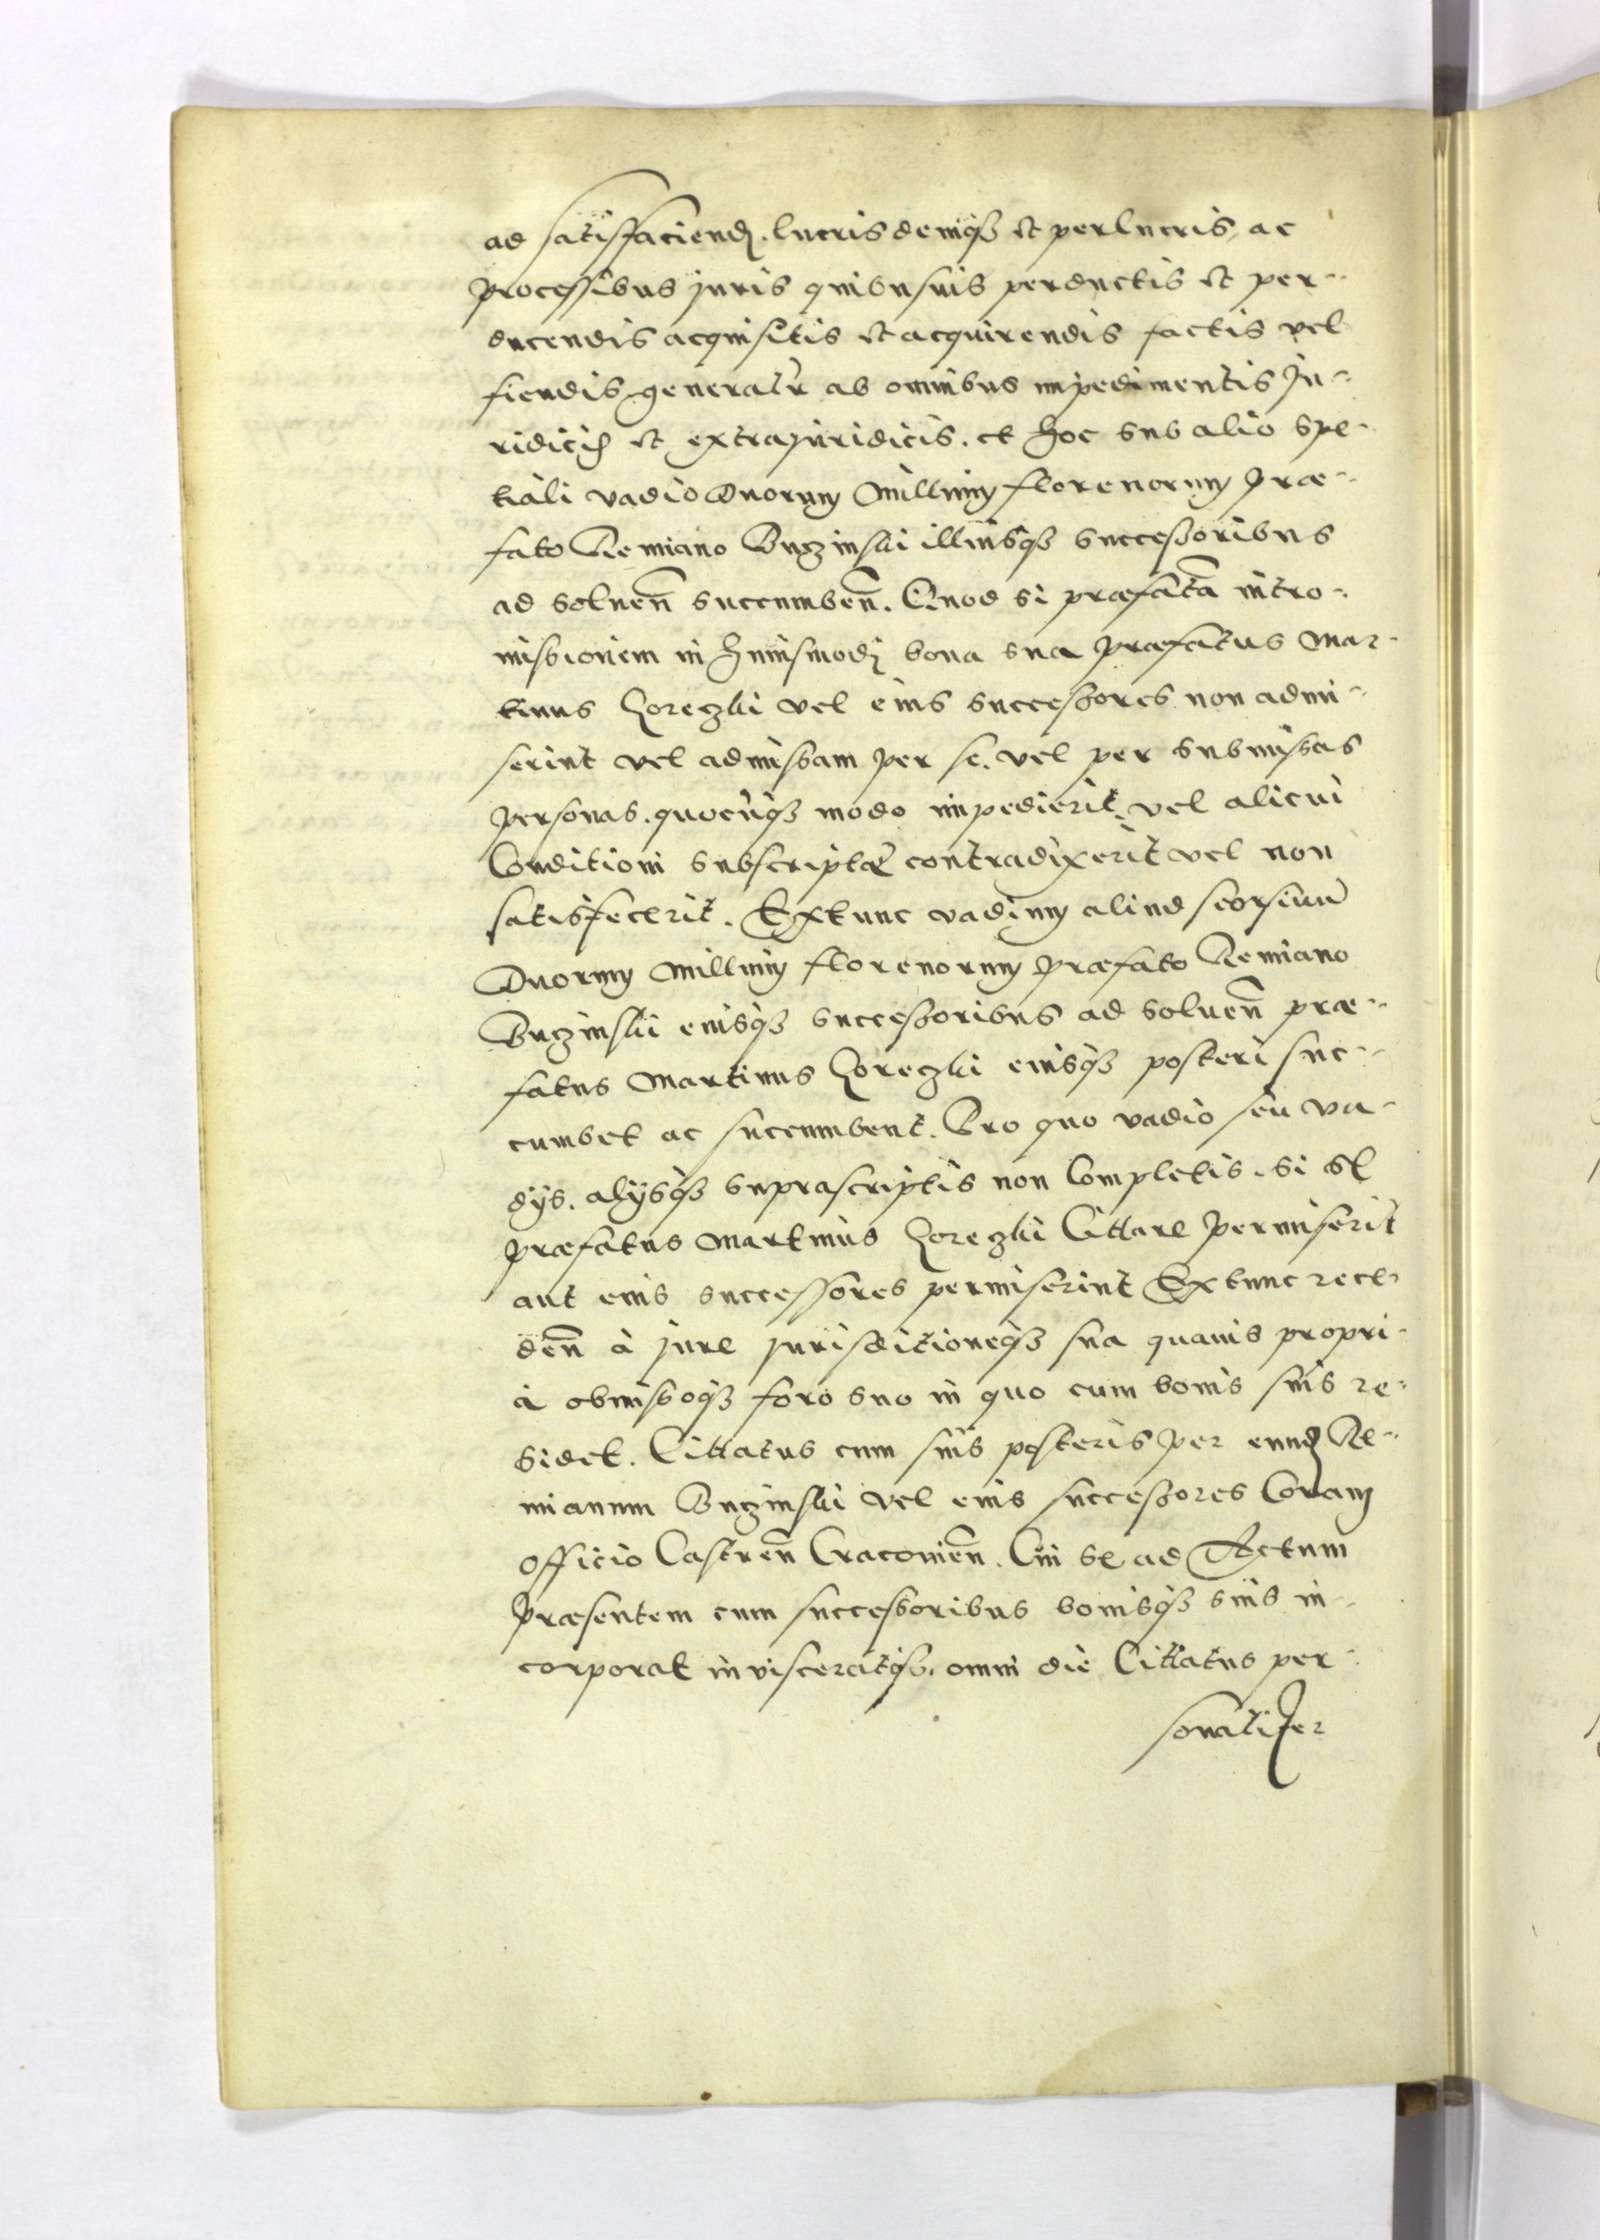 ad satisfaciend. lucris deniq3 et perlucris, ac
processibus juris quibusuis perductis et per-
ducendis acquisitis et acquirendis factis vel
fiendis, generalr ab omnibus impedimentis Ju-
ridicis et extrajuridicis. et hoc sub alio spe-
tiali vadio Duorum Millium florenorum Præ-
fato Remiano Buczinski illiusq3 successoribus
ad soluen succumben. Quod si præfatam intro-
missionem in huiusmodi bona sua Præfatus Mar-
tinus Zoreczki vel eius successores non admi-
serint vel admissam per se. vel per submissas
personas. quocunq3 modo impedierit vel alicui
Conditioni subscriptæ contradixerit vel non
satisfecerit. Extunc vadium aliud seorsiuum
Duorum Millium florenorum Præfato Remiano
Buczinski eiusq3 successoribus ad soluen præ-
fatus Martinus Zoreczki eiusq3 posteri suc-
cumbet ac succumbent. Pro quo vadio seu va-
dijs. alijsq3 suprascriptis non Completis. si se
Præfatus Martinus Zoreczki Cittare permiserit
aut eius successores permiserint Extunc rece-
den à jure jurisditioneq3 sua quauis propri-
a obmissoq3 foro suo in quo cum bonis suis re-
sidet. Cittatus cum suis posteris per eund Re-
mianum Buczinski vel eius successores Coram
officio Castren Cracouien. Cui se ad Actum
Præsentem cum successoribus bonisq3 suis in-
corporat invisceratq3. omni die Cittatus per-
sonaliter